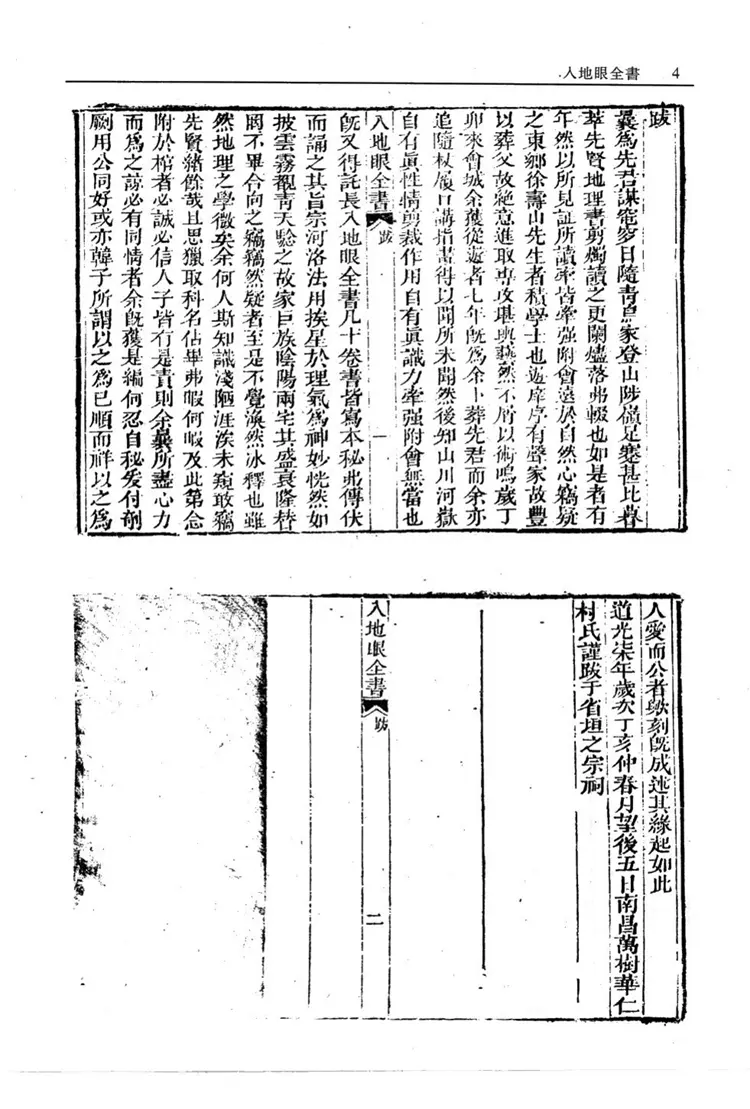 入地眼全書 4
跋
曩為先君謀窀穸日隨青烏家登山陟嶺足蹇甚比暮
萃先賢地理書剪燭讀之更闌燼落弗輟也如是者有
年然以所見証所讀率皆牽強附會遠於自然心竊疑
之東鄉徐壽山先生者積學士也遊庠序有聲家故豐
以葬父故絕意進取專攻堪輿藝然不屑以術鳴歲丁
卯來會城余獲從遊者七年既為余卜葬先君而余亦
追隨杖履口講指畫得以聞所未聞然後知山川河嶽
自有眞性情剪裁作用自有眞識力牽强附會無當也
入地眼全書 跋 一
既又得託長入地眼全書凡十卷書皆寫本秘弗傳伏
而誦之其旨宗河洛法用挨星於理氣為神妙恍然如
披雲霧覩青天驗之故家巨族陰陽兩宅其盛衰隆替
因不畢合向之竊竊然疑者至是不覺渙然冰釋也雖
然地理之學微矣余何人斯知識淺陋涯涘未窺敢竊
先賢緒餘哉且思獵取科名佔畢弗暇何暇及此第念
附於棺者必誠必信人子皆有是責則余曩所盡心力
而為之諒必有同情者余既獲是編何忍自秘爰付剞
劂用公同好或亦韓子所謂以之為已順而祥以之為
人愛而公者歟刻既成述其緣起如此
道光柒年歲次丁亥仲春月望後五日南昌萬樹華仁
村氏謹跋于省垣之宗祠
入地眼全書 跋 二